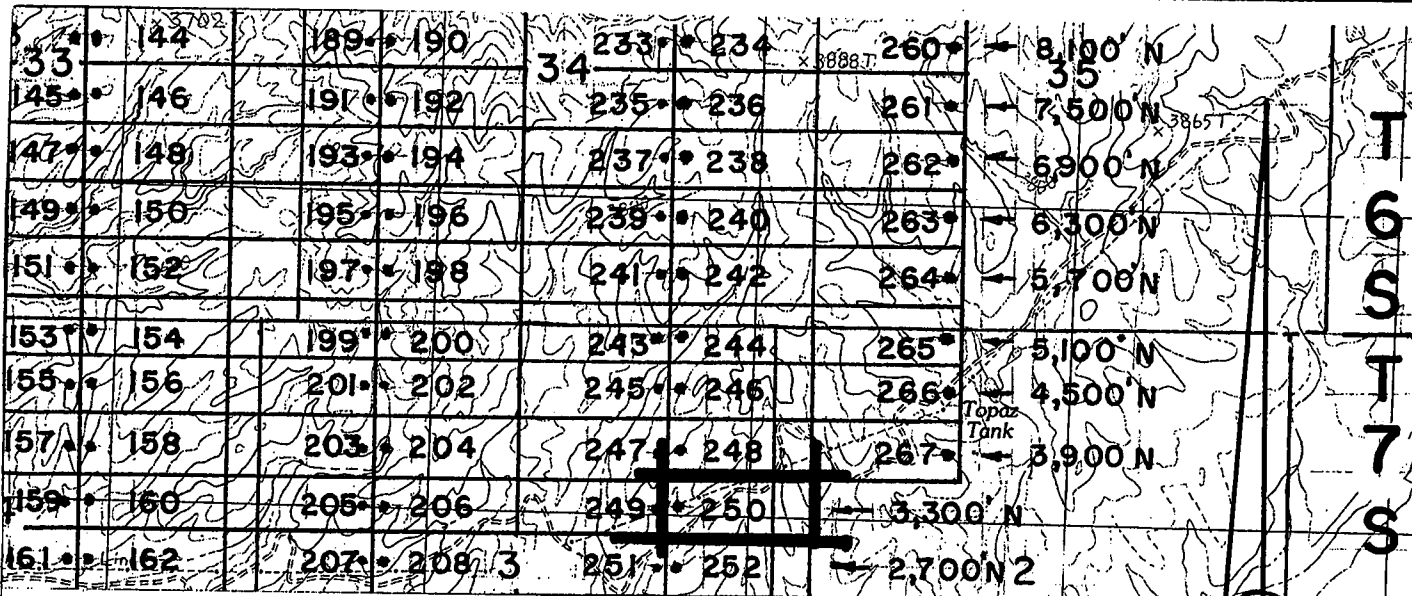 3702
144 189 190 233 234 260 8,100' N
33 34 3888T 35
145 146 191 192 235 236 261 7,500' N
3865T
147 148 193 194 237 238 262 6,900' N
149 150 195 196 239 240 263 6,300' N
151 152 197 198 241 242 264 5,700' N
153 154 199 200 243 244 265 5,100' N
155 156 201 202 245 246 266 4,500' N
Topaz
Tank
157 158 203 204 247 248 267 3,900' N
159 160 205 206 249 250 3,300' N
161 162 207 208 3 251 252 2,700' N 2
T
6
S
T
7
S